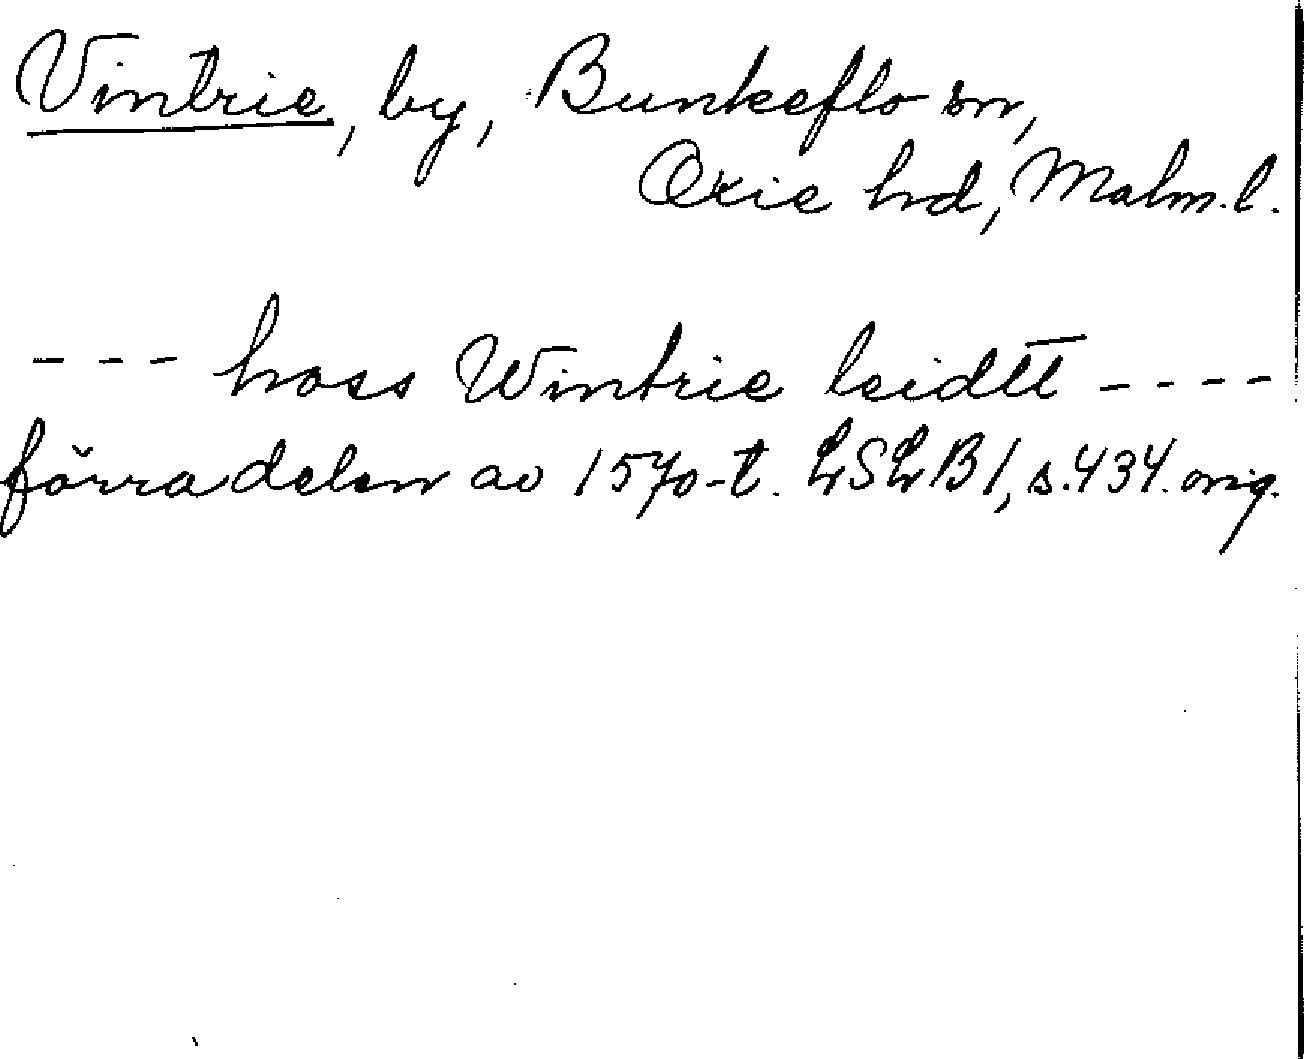 Vintrie, by, Bunkeflo sn,
Oxie hd, Malm. l.
--- hoss Wintrie leidtt ----
förra delen av 1570-t. LSLB 1, s. 434. orig.